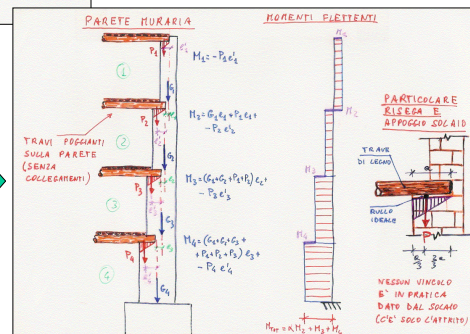 PARETE MURARIA
MOMENTI FLETTENTI
P1
e'1
1
G1
M1 = - P1 e'1
M1
P2
M2 = G1 e1 + P1 e1 +
- P2 e'2
M2
2
G2
TRAVI POGGIANTI
SULLA PARETE
(SENZA
COLLEGAMENTI)
P3
M3 = (G1+G2+P1+P2) e2 +
- P3 e'3
M3
3
G3
P4
M4 = (G1+G2+G3+
+P1+P2+P3) e3 +
- P4 e'4
M4
4
G4
PARTICOLARE
RISEGA E
APPOGGIO SOLAIO
TRAVE
DI LEGNO
a
RULLO
IDEALE
P
a/3
2/3 a
NESSUN VINCOLO
E' IN PRATICA
DATO DAL SOLAIO
(C'E' SOLO L'ATTRITO)